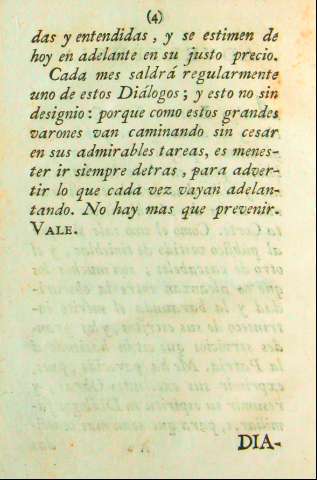 (4)
das y entendidas, y se estimen de
hoy en adelante en su justo precio.
Cada mes saldrá regularmente
uno de estos Diálogos; y esto no sin
designio: porque como estos grandes
varones van caminando sin cesar
en sus admirables tareas, es menes-
ter ir siempre detras, para adver-
tir lo que cada vez vayan adelan-
tando. No hay mas que prevenir.
VALE.
DIA-